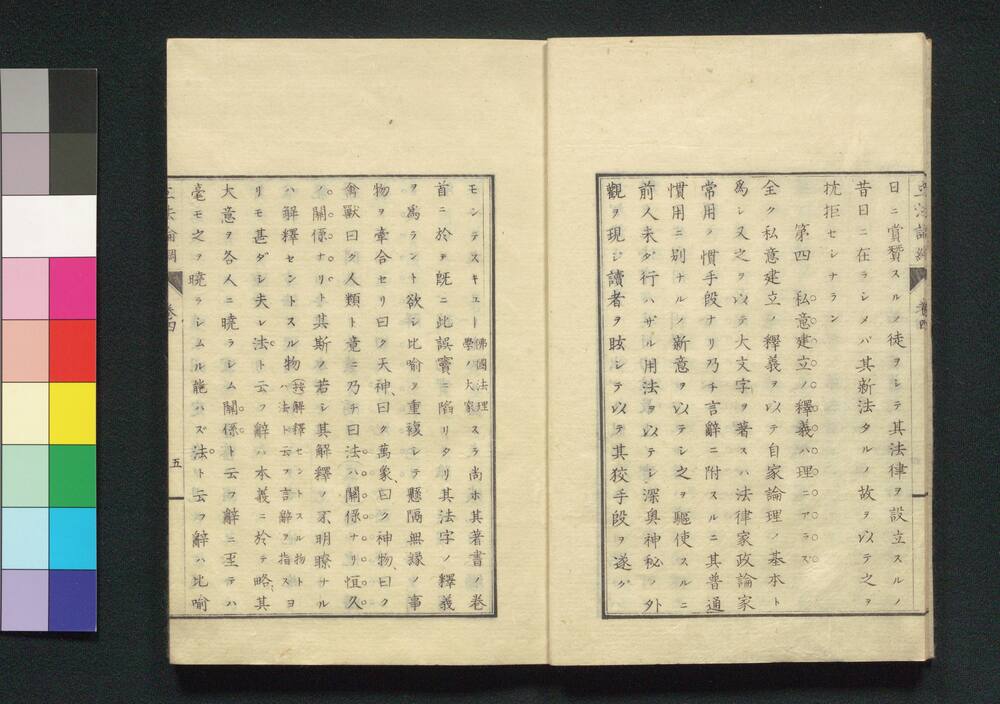 日ニ賞賛スルノ徒ヲシテ其法律ヲ設立スルノ
昔日ニ在ラシメバ其新法タルノ故ヲ以テ之ヲ
抗拒セシナラン
第四　私意建立ノ釋義ハ理ニアラズ
全ク私意建立ノ釋義ヲ以テ自家論理ノ基本ト
為シ又之ヲ以テ大文字ヲ著スハ法律家政論家
常用ノ慣手段ナリ乃チ言辭ニ附スルニ其普通
慣用ニ別ナルノ新意ヲ以テシ之ヲ驅使スルニ
前人未ダ行ハザル用法ヲ以テシ深奥神秘ノ外
觀ヲ現シ讀者ヲ眩シテ以テ其狡手段ヲ遂グ
モンテスキユー佛國法理學ノ大家スラ尚ホ其著書ノ卷
首ニ於テ既ニ此誤竇ニ陷リタリ其法字ノ釋義
ヲ為ラント欲シ比喻ヲ重複シテ懸隔無縁ノ事
物ヲ牽合セリ曰ク天神、曰ク萬象、曰ク神物、曰ク
禽獸曰ク人類ト竟ニ乃チ曰法ハ關係ナリ恒久
ノ關係ナリト其斯ノ若シ其解釋ノ不明瞭ナル
ハ解釋セントスル物我解釋セントスル物トハ法ト云フ言辭ヲ指スヨ
リモ甚ダシ夫レ法ト云フ辭ハ本義ニ於テ略、其
大意ヲ各人ニ曉ラシム關係ト云フ辭ニ至テハ
毫モ之ヲ曉ラシムル能ハズ法ト云フ辭ハ比喻
卷四
五